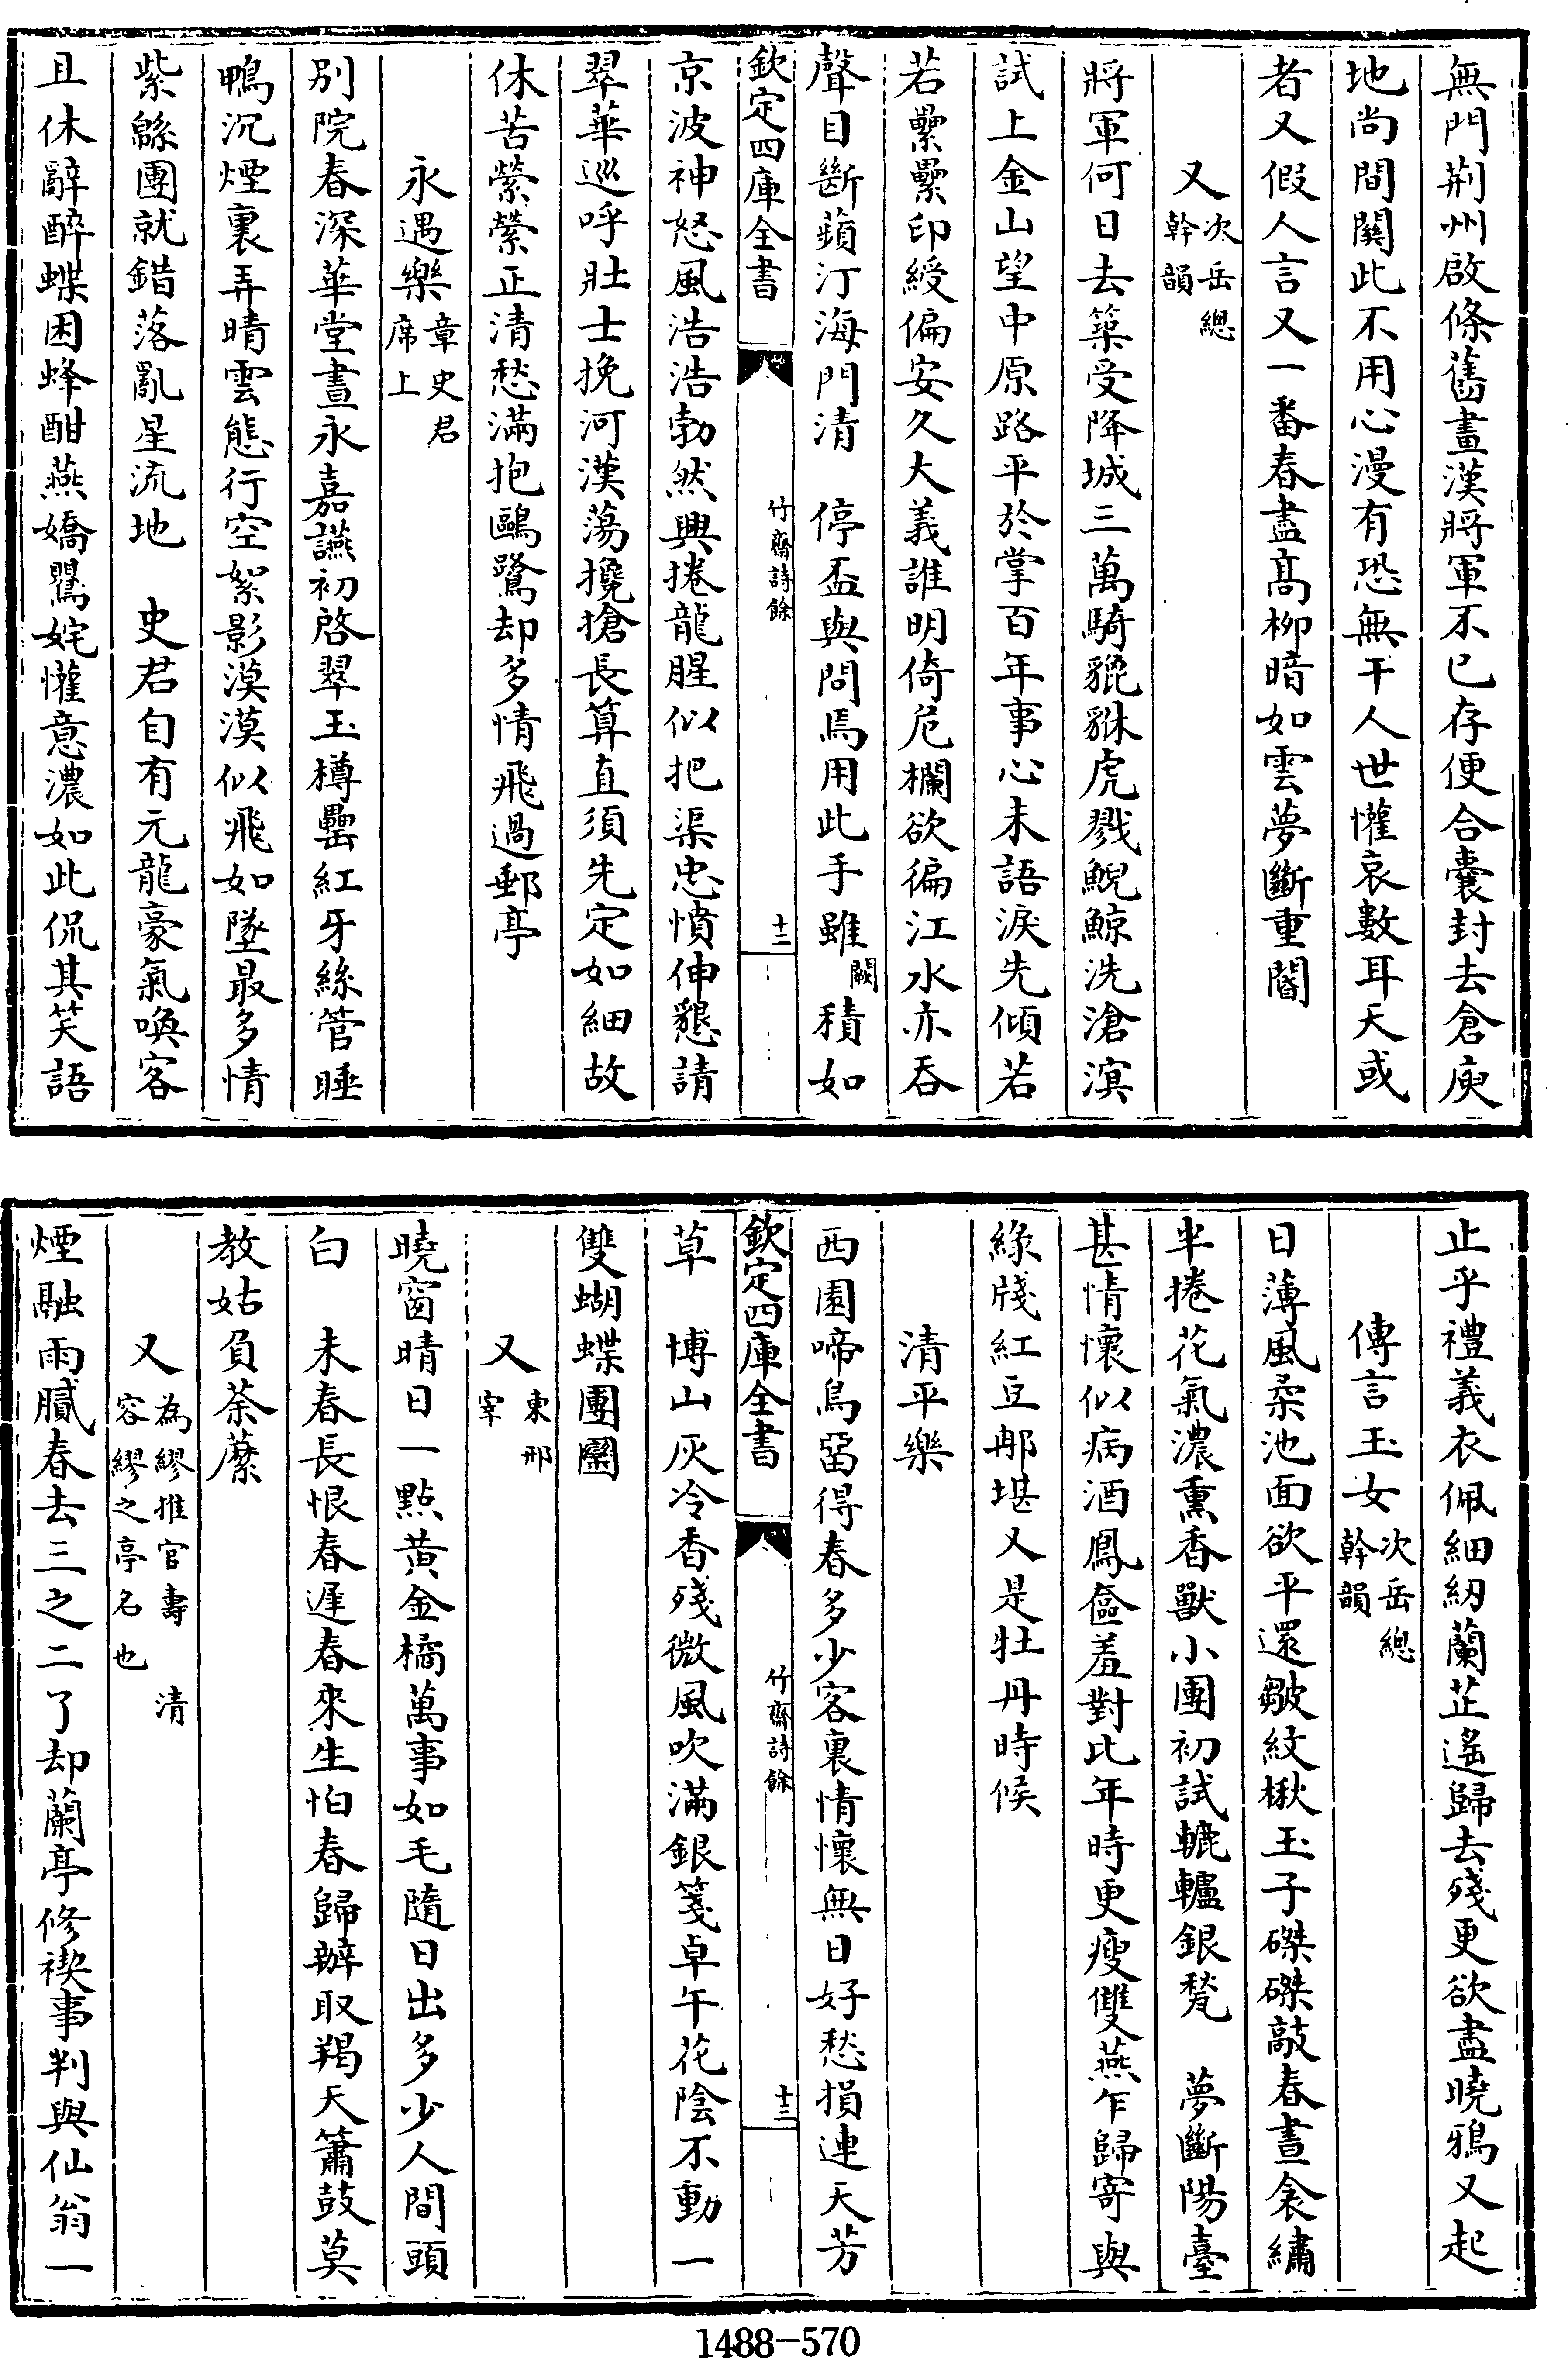 無門荆州啟條舊畫漢將軍不已存便合囊封去倉庾
地尚間關此不用心漫有恐無干人世懽哀數耳天或
者又假人言又一番春盡髙柳暗如雲夢斷重閽
又次岳總幹韻
將軍何日去築受降城三萬騎貔貅虎戮鯢鯨洗滄溟
試上金山望中原路平於掌百年事心未語淚先傾若
若纍纍印綬偏安久大義誰明倚危欄欲徧江水亦吞
聲目斷蘋汀海門清　停盃與問焉用此手雖闕積如
欽定四庫全書　竹齋詩餘　十二
京波神怒風浩浩勃然興捲龍腥似把渠忠憤伸懇請
翠華巡呼壯士挽河漢蕩攙搶長算直須先定如細故
休苦縈縈正清愁滿抱鷗鷺却多情飛過郵亭
永遇樂章史君席上
別院春深華堂晝永嘉讌初啓翠玉樽罍紅牙絲管睡
鴨沉煙裏弄晴雲態行空絮影漠漠似飛如墜最多情
紫緜團就錯落亂星流地　史君自有元龍豪氣喚客
且休辭醉蝶困蜂酣燕嬌鸎姹懽意濃如此侃其笑語
止乎禮義衣佩細紉蘭芷遙歸去殘更欲盡曉鴉又起
傳言玉女次岳總幹韻
日薄風柔池面欲平還皺紋楸玉子磔磔敲春晝衾繡
半捲花氣濃熏香獸小團初試轆轤銀甃　夢斷陽臺
甚情懷似病酒鳳奩羞對比年時更瘦雙燕乍歸寄與
綠牋紅豆那堪又是牡丹時候
清平樂
西園啼鳥留得春多少客裏情懷無日好愁損連天芳
欽定四庫全書　竹齋詩餘　十三
草　博山灰冷香殘微風吹滿銀箋卓午花陰不動一
雙蝴蝶團圞
又東邢宰
曉窗晴日一點黄金橘萬事如毛隨日出多少人間頭
白　未春長恨春遲春來生怕春歸辦取羯天簫鼓莫
教姑負荼蘼
又為繆推官壽　清容繆之亭名也
煙融雨膩春去三之二了却蘭亭修禊事判與仙翁一
1488-570